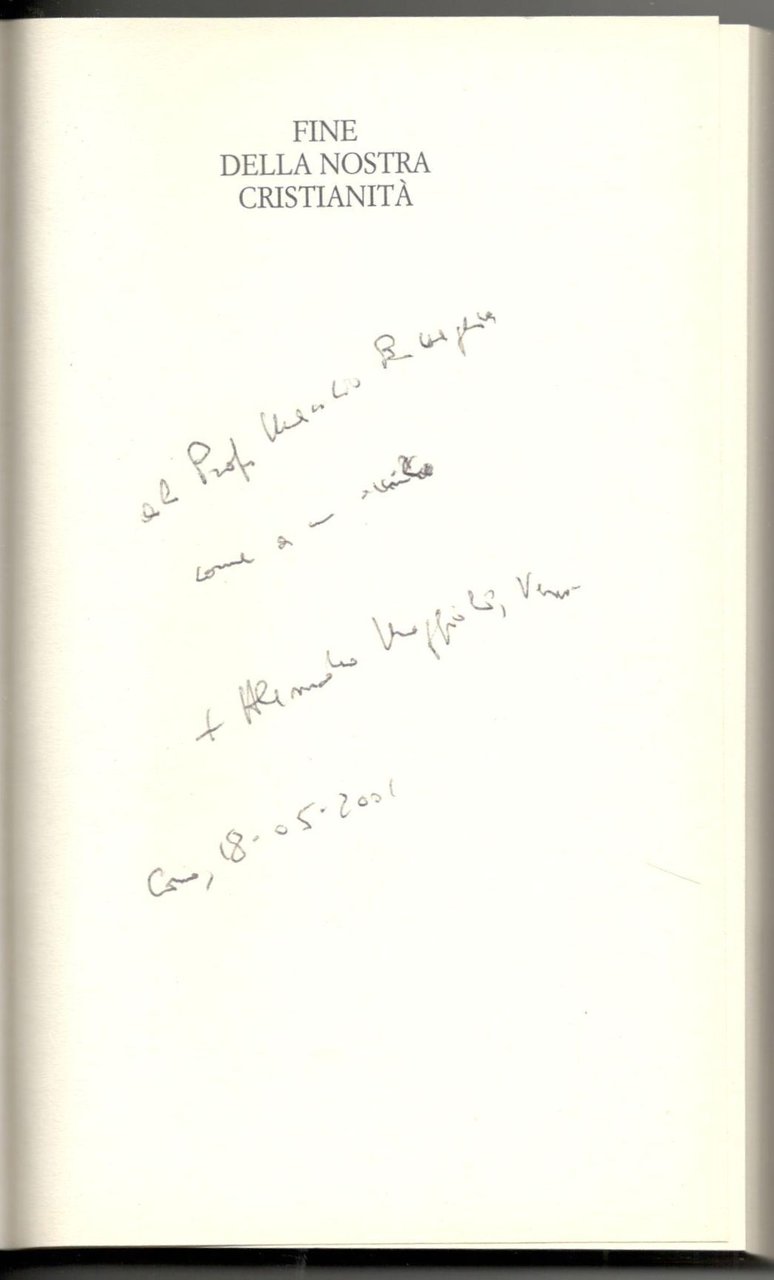 FINE
DELLA NOSTRA
CRISTIANITÀ
al Prof.
come a un
+ Alessandro Maggiolini, Vesc.
Como, 18-05-2001